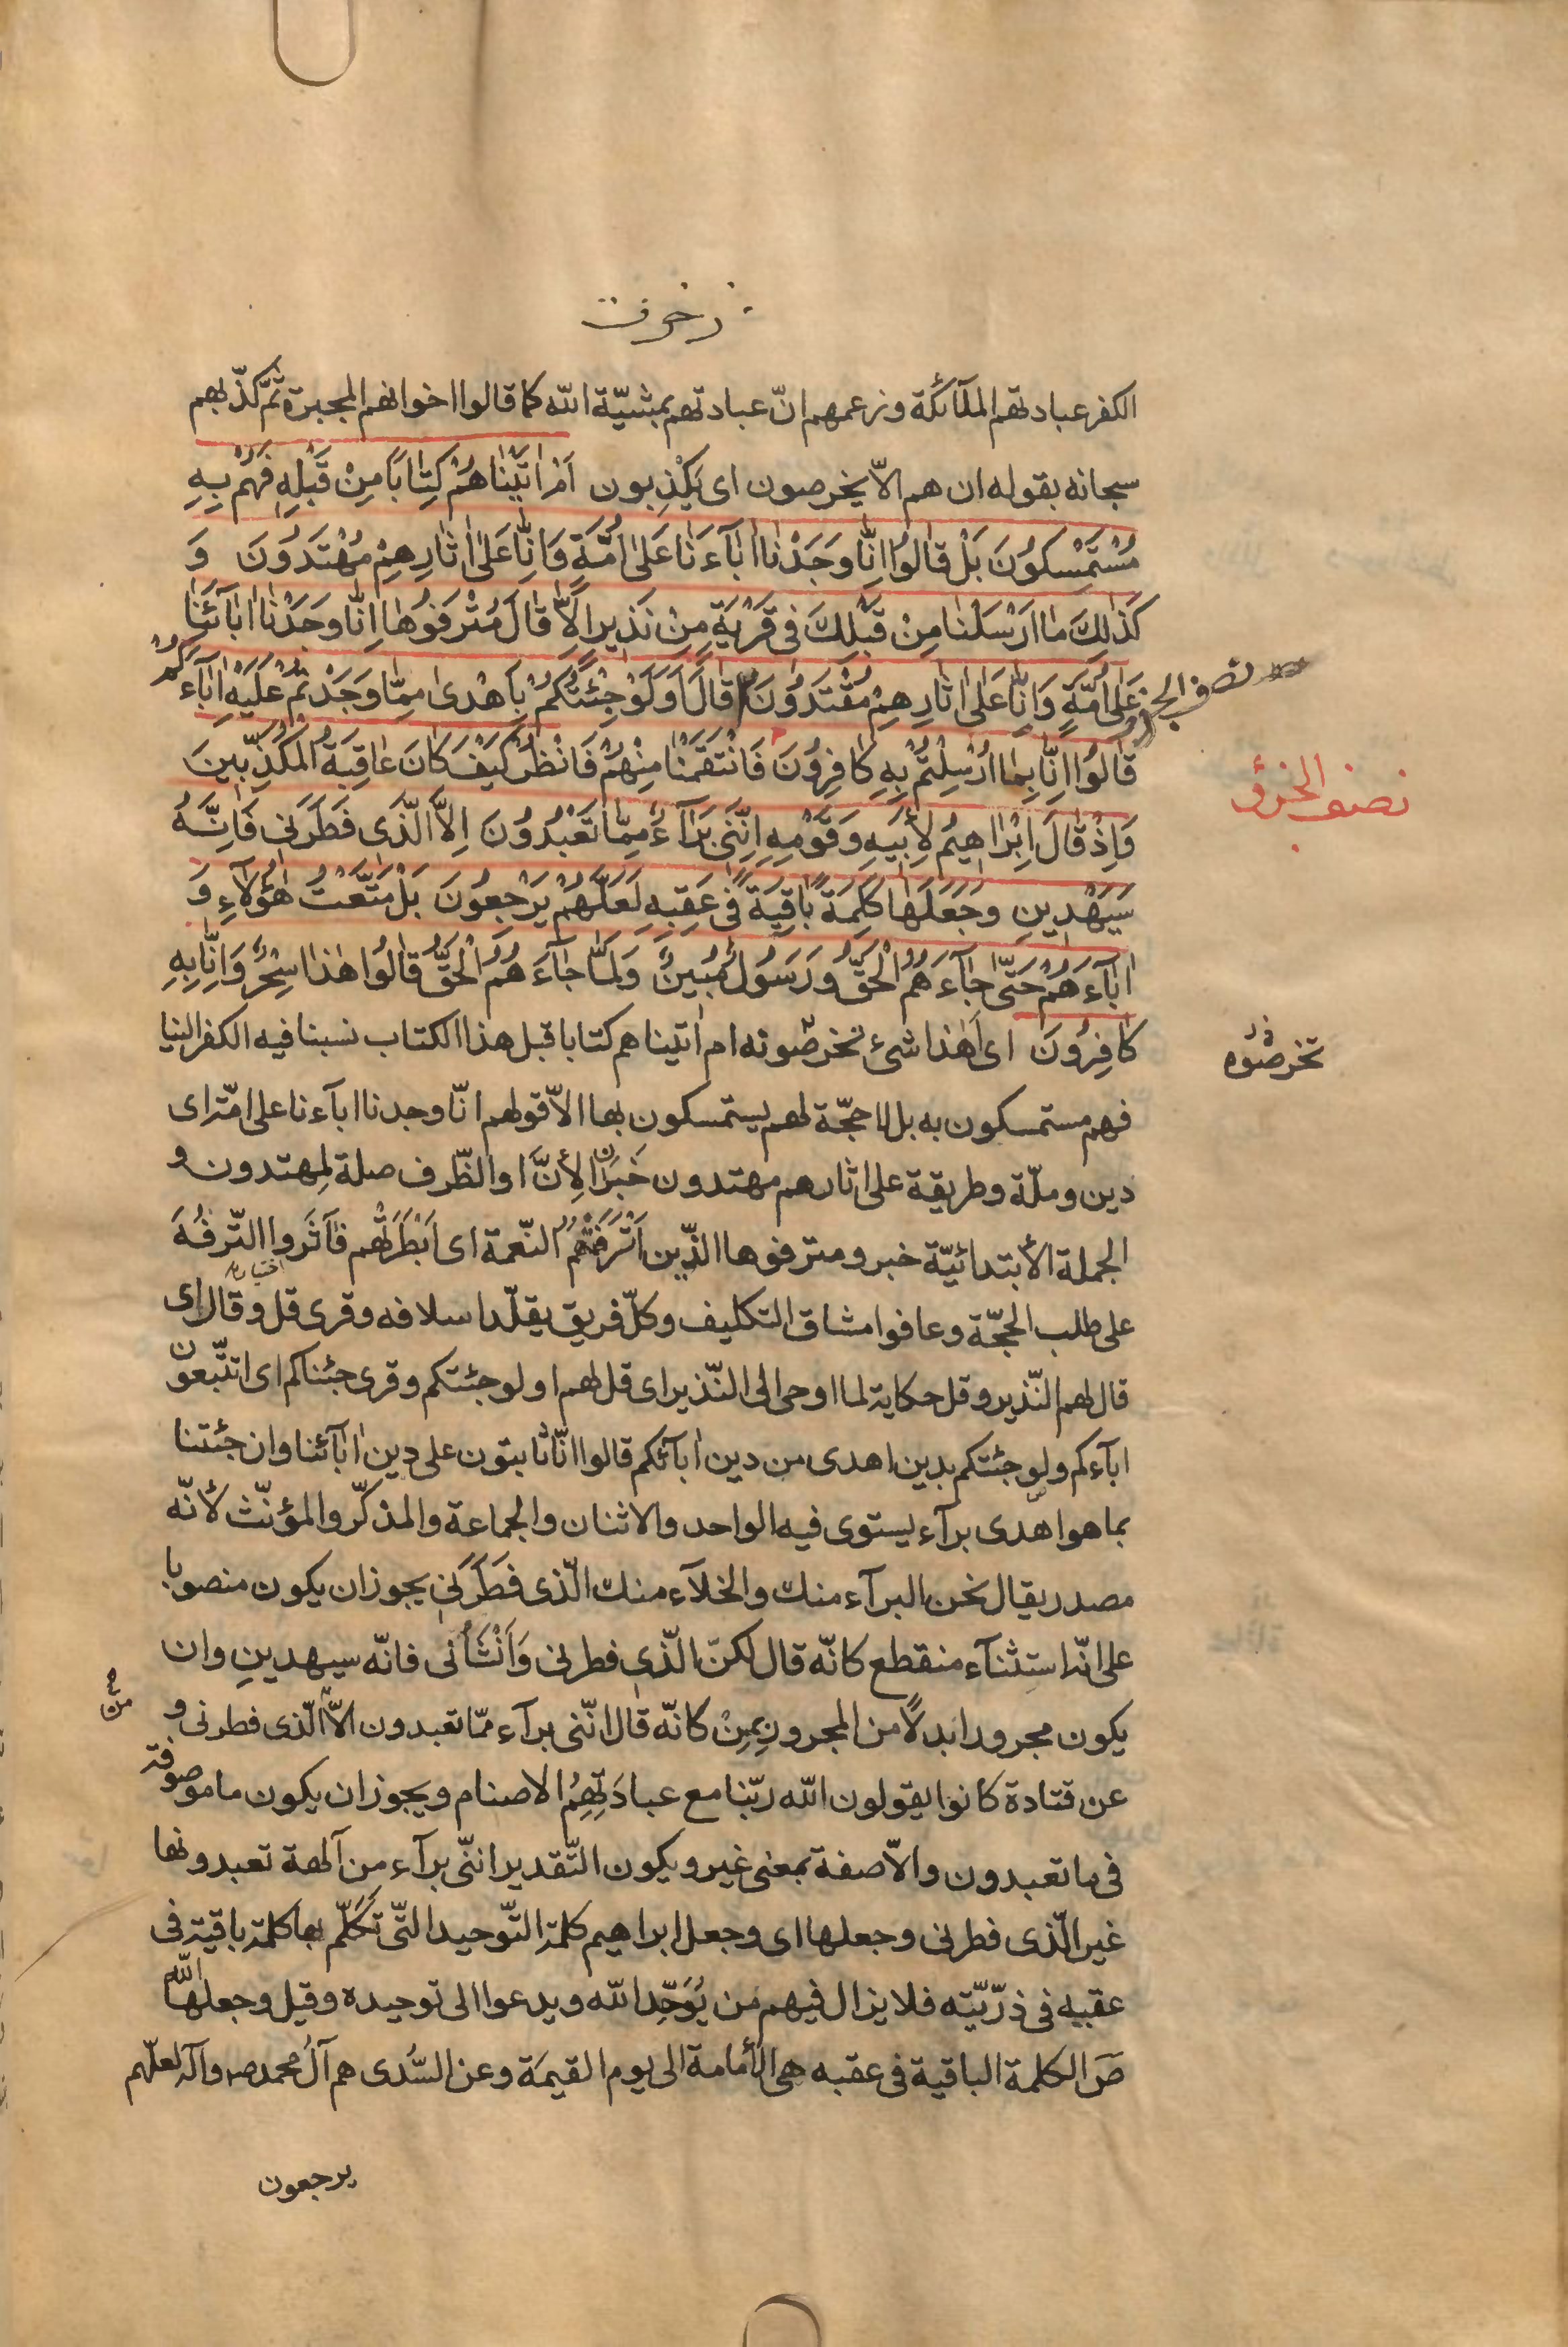 زخرف
الكفر عبادتهم الملآئكة وزعمهم انّ عبادتهم بمشيّة الله كما قالوا اخوانهم المجبرة ثمّ كذّبهم
سبحانه بقوله ان هم الّا يخرصون اى يَكْذِبون اَمْ اٰتَيْنٰاهُمْ كِتٰابًا مِنْ قَبْلِهِ فَهُمْ بِهِ
مُسْتَمْسِكُونَ بَلْ قٰالُوا اِنّٰا وَجَدْنٰا اٰبٰآءَنٰا عَلىٰ اُمَّةٍ وَاِنّٰا عَلىٰ اٰثٰارِهِمْ مُهْتَدُونَ وَ
كَذٰلِكَ مٰا اَرْسَلْنٰا مِنْ قَبْلِكَ فى قَرْيَةٍ مِنْ نَذيرٍ اِلّٰا قٰالَ مُتْرَفُوهٰا اِنّٰا وَجَدْنٰا اٰبٰآئَنٰا
عَلىٰ اُمَّةٍ وَاِنّٰا عَلىٰ اٰثٰارِهِمْ مُقْتَدُونَ قٰالَ اَوَلَوْ جِئْتُكُمْ بِاَهْدىٰ مِمّٰا وَجَدْتُمْ عَلَيْهِ اٰبٰآءَكُمْ
نصف الجزء
قٰالُوا اِنّٰا بِمٰا اُرْسِلْتُمْ بِهِ كٰافِرُونَ فَانْتَقَمْنٰا مِنْهُمْ فَانْظُرْ كَيْفَ كٰانَ عٰاقِبَةُ الْمُكَذِّبينَ
نصف الجزؤ
وَاِذْ قٰالَ اِبْرٰاهيمُ لِاَبيهِ وَقَوْمِهِ اِنَّنى بَرٰآءٌ مِمّٰا تَعْبُدُونَ اِلَّا الَّذى فَطَرَنى فَاِنَّهُ
سَيَهْدينِ وَجَعَلَهٰا كَلِمَةً بٰاقِيَةً فى عَقِبِهِ لَعَلَّهُمْ يَرْجِعُونَ بَلْ مَتَّعْتُ هٰؤُلآءِ وَ
اٰبٰآءَهُمْ حَتّٰى جٰآءَهُمُ الْحَقُّ وَرَسُولٌ مُبينٌ وَلَمّٰا جٰآءَهُمُ الْحَقُّ قٰالُوا هٰذٰا سِحْرٌ وَاِنّٰا بِهِ
كٰافِرُونَ اى اَهٰذا شىء تخرصّونه ام اٰتيناهم كتابا قبل هذا الكتاب نسبنا فيه الكفر الينا
تخرصّوه
فهم مستمسكون به بل لا حجّة لهم يستمسكون بها الّا قولهم انّا وجدنا ابآءنا على امّة اى
دين وملّة وطريقة على اثارهم مهتدون خَبَران لِأنَّ او الظّرف صلة لمهتدون و
الجملة الأبتدائيّة خبر ومترفوها الّذين اَتْرَفَتْهُمُ النّعمة اى اَبْطَرَتْهُم فآثَروا التّرفُّهَ
على طلب الحجّة وعافوا مشاق التكليف وكلّ فريق يقلّد اسلافه وقرى قل وقال اى
قال لهم النّذير وقل حكاية لما اوحى الى النّذير اى قل لهم اولو جئتكم وقرى جئناكم اى اتتّبعون
ابآءكم ولو جئتكم بدين اهدى من دين اٰبآئكم قالوا انّا ثابتون على دين اٰبآئنا وان جئتنا
بما هو اهدى برآء يستوى فيه الواحد والاثنان والجماعة والمذكّر والمؤنّث لأنّه
مصدر يقال نحن البرآء منك والخلآء منك الّذى فَطَرَنى يجوز ان يكون منصوبا
على انّه استثنآء منقطع كانّه قال لكنّ الّذى فطرنى وَاَنْشَأنى فانّه سيهدينِ وان
يكون مجرورا بدلًا من المجرور بِمِنْ كانّه قال انّنى برآء ممّا تعبدون الّا الّذى فطرنى و
عن قتادة كانوا يقولون الله ربّنا مع عبادَتِهِمُ الاصنام ويجوز ان يكون ما موصوفة
فى ما تعبدون والّا صفة بمعنى غير ويكون التّقدير انّنى برآء من آلهة تعبدونها
غير الّذى فطرنى وجعلها اى وجعل ابراهيم كلمة التّوحيد الّتى تَكَلَّم بها كلمة باقية فى
عقبه فى ذرّيّته فلا يزال فيهم مَن يُوَحّد الله ويدعوا الى توحيده وقيل وجعلها الله
صَ الكلمة الباقية فى عقبه هى الأمامة الى يوم القيمَة وعن السُّدى هم آلُ محمد ص وآله لعلّهم
يرجعون